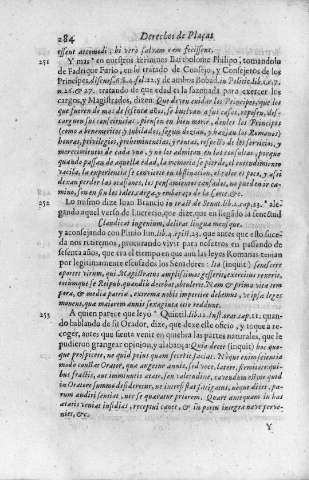 284 Derechos de Plaças
essent accomodi: hi verò salvam rem fecissent.
251 Y mas en nuestros terminos Bartholome Philipo, tomandolo
de Fadrique Furio, en lo tratado de Consejo, y Consejeros de los
Principes, discurs. 8. §. 4. fol. 22. y de ambos Bobad. in Politic. lib. 1. c. 7.
n. 26. & 27. tratando de que edad es la sazonada para exercer los
cargos, y Magistrados, dizen. Que deven cuidar los Principes, que los
que fueren de mas de sesenta años, se buelvan a sus casas, reposen, des-
carguen sus consciencias, piensen en bien morir, deules los Principes
(como a benemeritos y jubilados, segun dezian, y hazian los Romanos)
honras, privilegios, preheminencias, y rentas, respeto de los servicios, y
merecimientos de cada uno, y no los admitan en las consultas, porque
quando passan de aquella edad, la memoria se pierde, el entendimiento
vacila, la experiencia se convierte en obstinacion, el calor es poco, y assi
dexan perder las ocasiones, los pensamientos cansados, no pueden ca-
minar, en fin los tales cargan, y embaraço de la Corte, &c.
252 Lo mismo dize Juan Brancio in tract. de Senat. lib. 1. cap. 23. ale-
gando aquel verso de Lucrecio, que dize, que en llegado la senectud
Claudicat ingenium, delirat lingua mensque.
y aconsejando con Plinio Iun. lib. 4. epist. 23. que antes que esto suceda
nos retiremos, procurando vivir para nosotros en passando de
sesenta años, que era el tiempo en que aun las leyes Romanas tenian
por legitimamente escusados los Senadores: Ita (inquit) senescere
oportet virum, qui Magistratus amplissimos gesserit, exercitus rexerit,
totumque se Reipub. quandiu decebat, obtulerit. Nam & prima vitæ tem-
pora, & media patriæ, extrema nobis impertire debemus, ut ipsæ leges
monent, quæ maiorem annis sexaginta otio reddunt.
253 A quien parece que leyò Quintil. lib. 12. Instit. orat. cap. 11. quan-
do hablando de su Orador, dize, que dexe el oficio, y toque a re-
coger, antes que sienta venir en quiebra las partes naturales, que le
pudieron grangear opinion, y alabança: Quia decet (inquit) hoc quo-
que prospicere, ne quid peius quam fecerit faciat. Neque enim scientia
modo constat Orator, quæ augetur annis, sed voce, latere, firmitate: qui-
bus fractis, aut imminutis ætate, seu valetudine, cavendum est, ne quid
in Oratore summo desideretur, ne intersistat fatigatus, neque dicat, pa-
rum audiri sentiat, ne se quæratur priorem. Quare antequam in has
ætatis veniat insidias, receptui canet, & in portu integra nave perve-
niet, &c.
Y